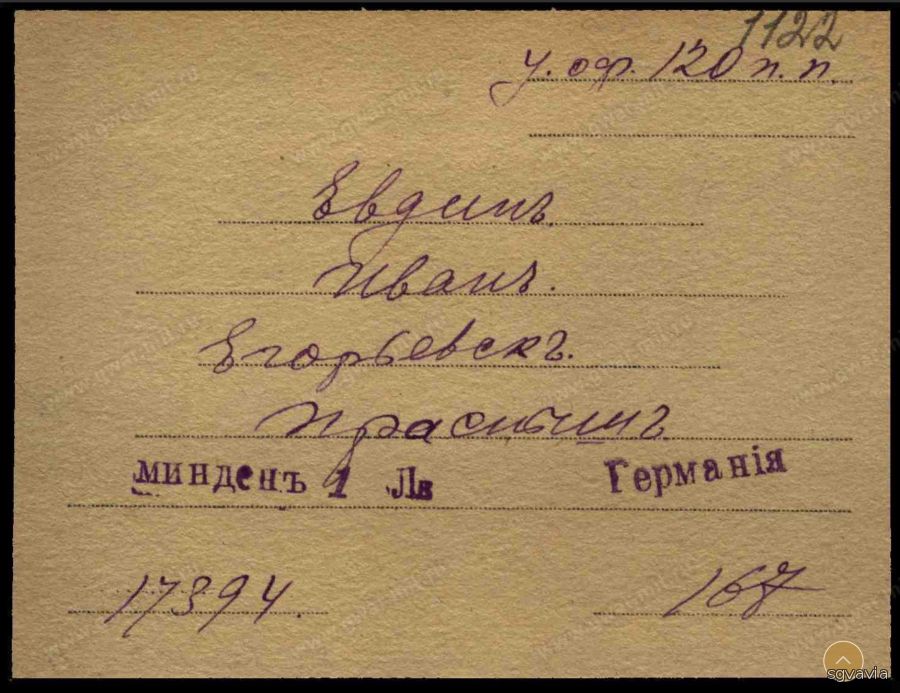 1122
у. оф. 120 п. п.
Евдинъ
Иванъ.
Егорьевскъ.
Праснышъ
МИНДЕНЪ 1 Лв Германія
17394. 167
sgvavia